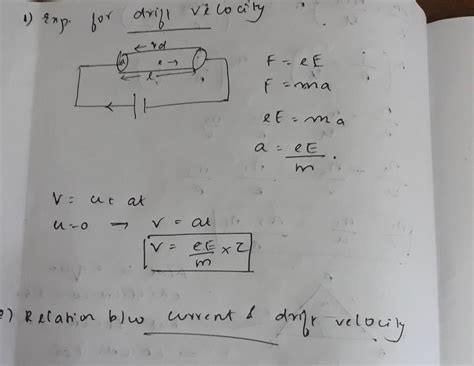 1) Exp. for drift velocity
← vd
a e →
← l →
F = eE
F = ma
eE = ma
a = eE/m.
V = u + at
u = 0 → v = at
V = eE/m × τ
2) Relation b/w current & drift velocity